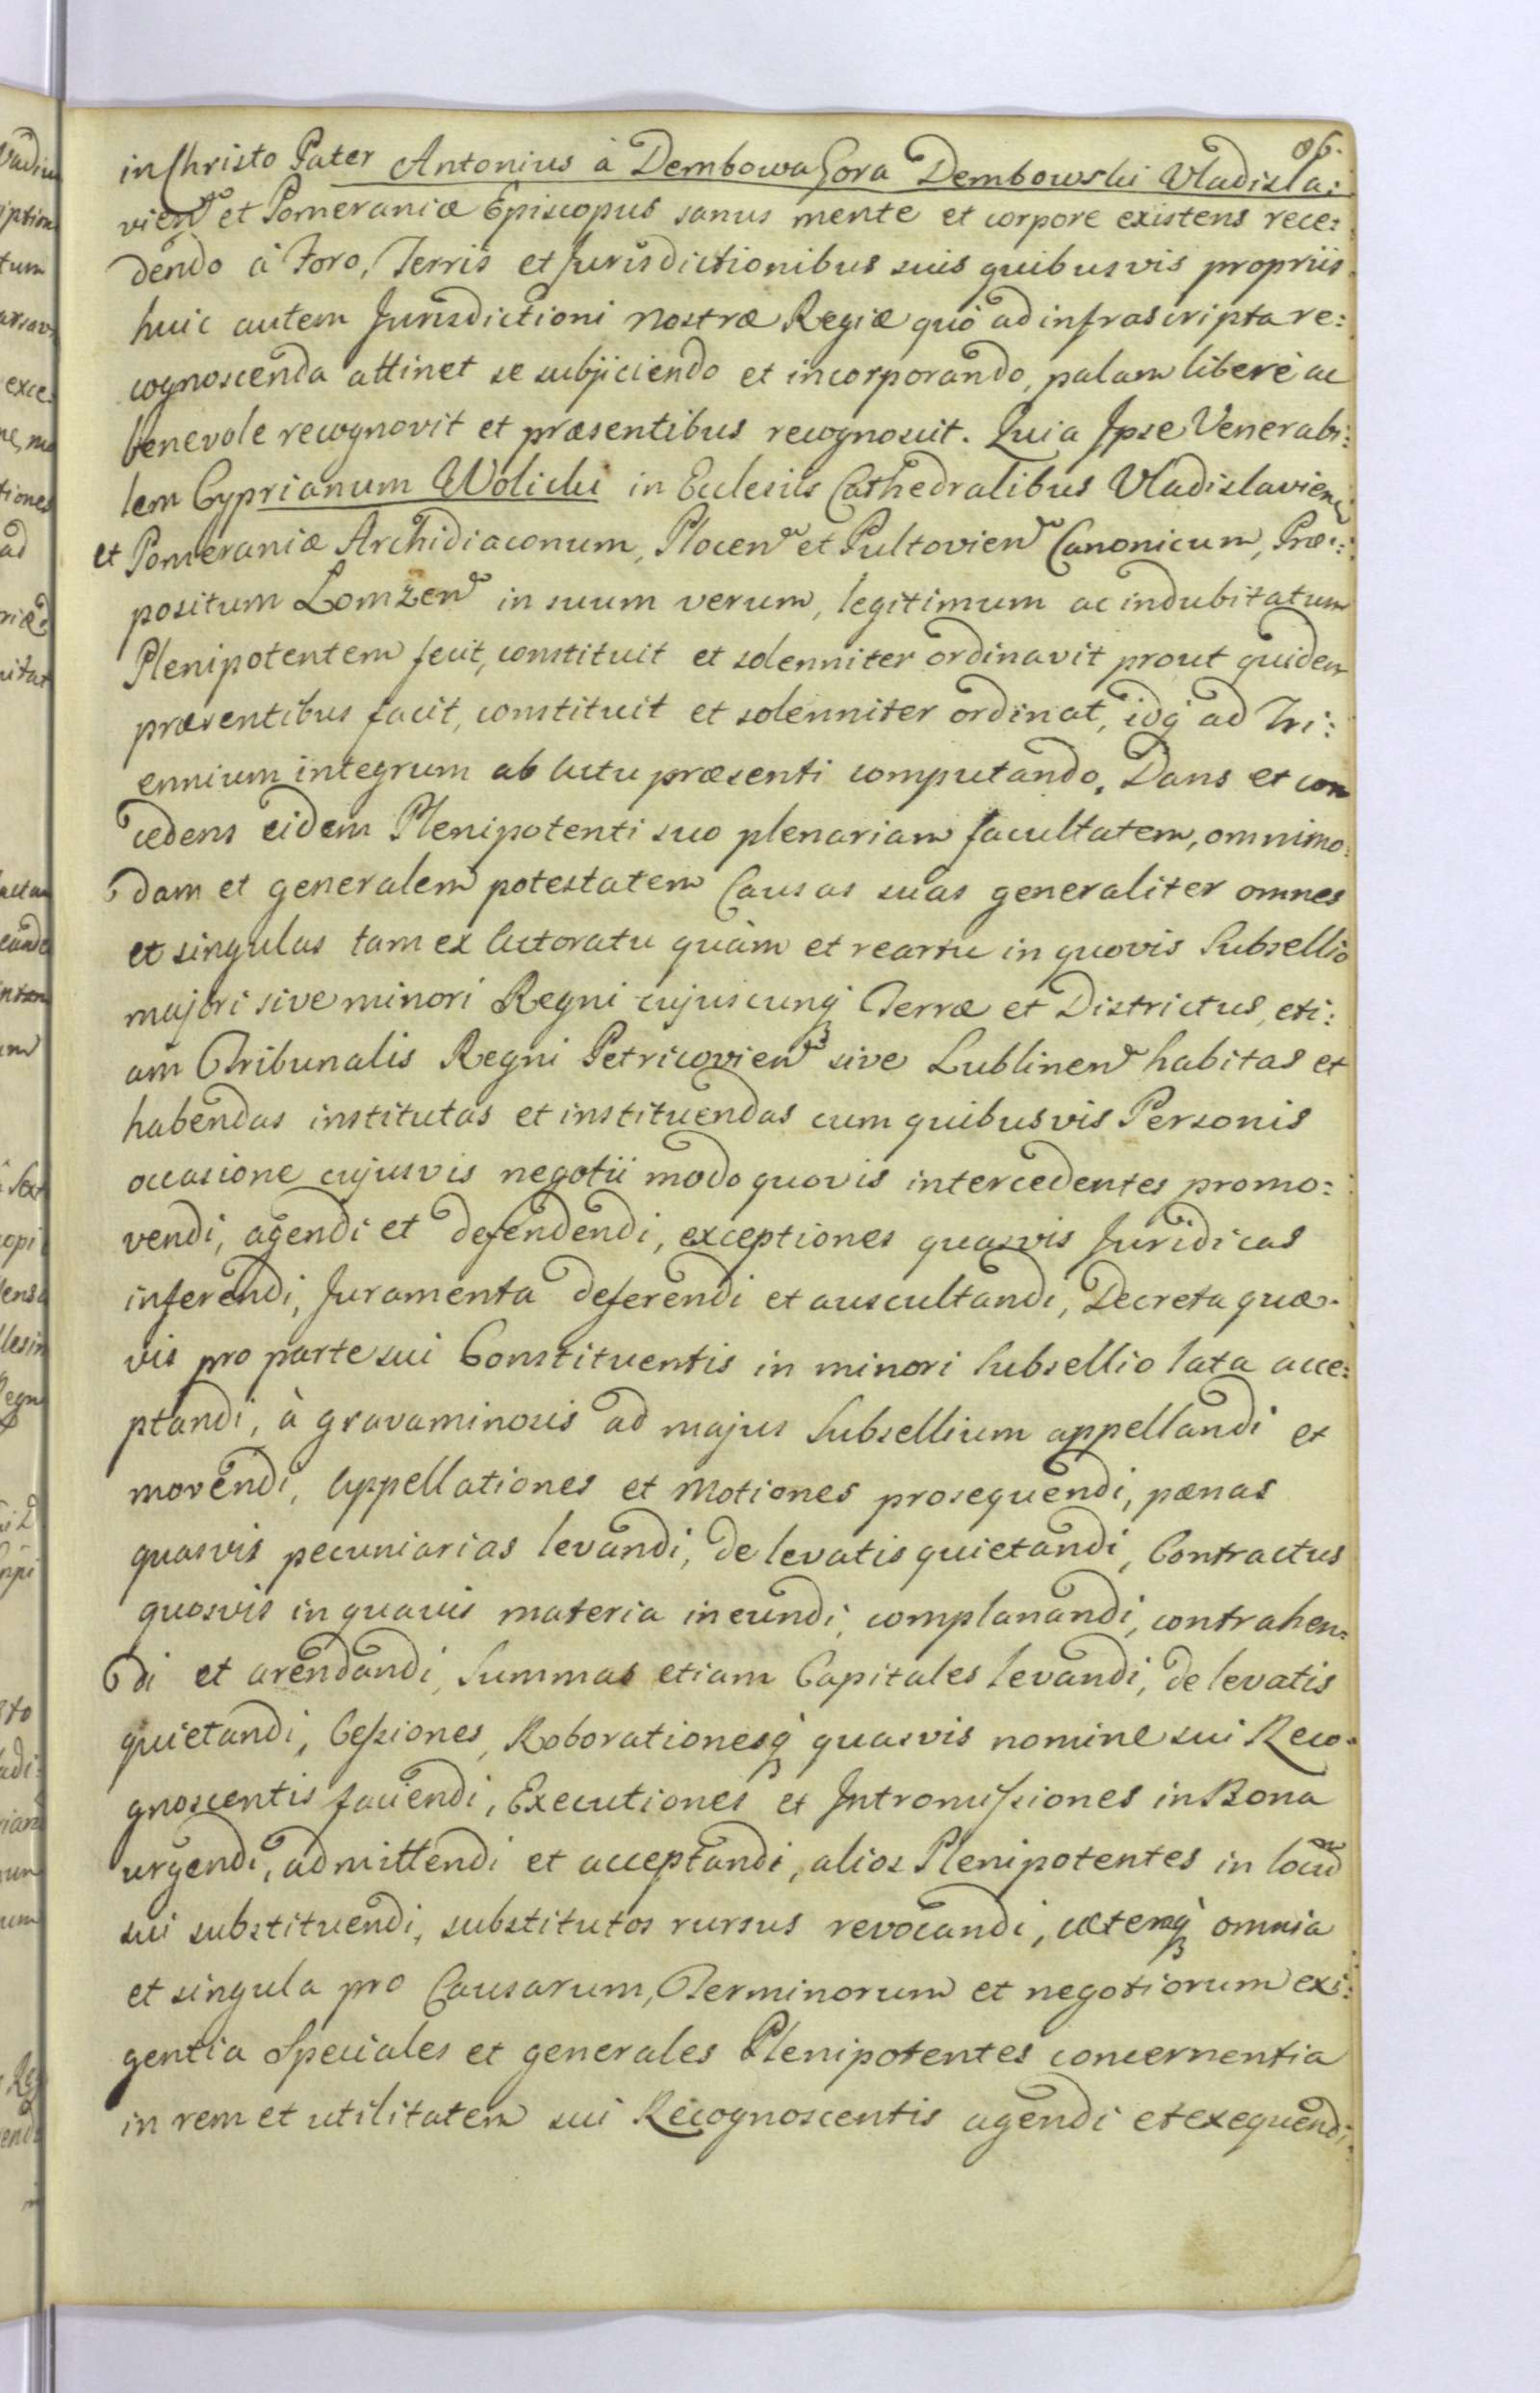 86.
in Christo Pater Antonius à Dembowa Gora Dembowski Vladisla:
vien et Pomeraniæ Episcopus sanus mente et corpore existens rece:
dendo à Foro, Terris et Jurisdictionibus suis quibusvis propriis
huic autem Jurisdictioni nostræ Regiæ quò ad infrascripta re:
cognoscenda attinet se subjiciendo et incorporando, palam liberè ac
benevole recognovit et præsentibus recognoscit. Quia Ipse Venerabi:
lem Cyprianum Wolicki in Eclesiis Cathedralibus Vladislavien
et Pomeraniæ Archidiaconum, Plocen et Pultovien Canonicum, Præ:
positum Lomzen in suum verum, legitimum ac indubitatum
Plenipotentem fecit, constituit et solenniter ordinavit prout quidem
præsentibus facit, constituit et solenniter ordinat, idq ad Tri:
ennium integrum ab actu præsenti computando. Dans et con
cedens eidem Plenipotenti suo plenariam facultatem, omnimo:
dam et generalem potestatem Causas suas generaliter omnes
et singulas tam ex actoratu quàm et reatu in quovis Subsellio
majori sive minori Regni cujuscunq Terræ et Districtus, eti:
am Tribunalis Regni Petricovien sive Lublinen habitas et
habendas institutas et instituendas cum quibusvis Personis
occasione cujusvis negotii modo quovis intercedentes promo:
vendi, agendi et defendendi, exceptiones quasvis Juridicas
inferendi, Juramenta deferendi et auscultandi, Decreta quæ-
vis pro parte sui Constituentis in minori subsellio lata acce:
ptandi, à gravaminosis ad majus Subsellium appellandi et
movendi, appellationes et Motiones prosequendi, pænas
quasvis pecuniarias levandi, de levatis quietandi, Contractus
quosvis in quavis materia ineundi, complanandi, contrahen:
di et arendandi, Summas etiam Capitales levandi, de levatis
quietandi, Cessiones, Roborationesq quasvis nomine sui Reco-
gnoscentis faciendi, Executiones et Intromissiones in Bona
urgendi, admittendi et acceptandi, alios Plenipotentes in locum
sui substituendi, substitutos rursus revocandi, cæteraq omnia
et singula pro Causarum, Terminorum et negotiorum exi:
gentia Speciales et generales Plenipotentes concernentia
in rem et utilitatem sui Recognoscentis agendi et exequendi: